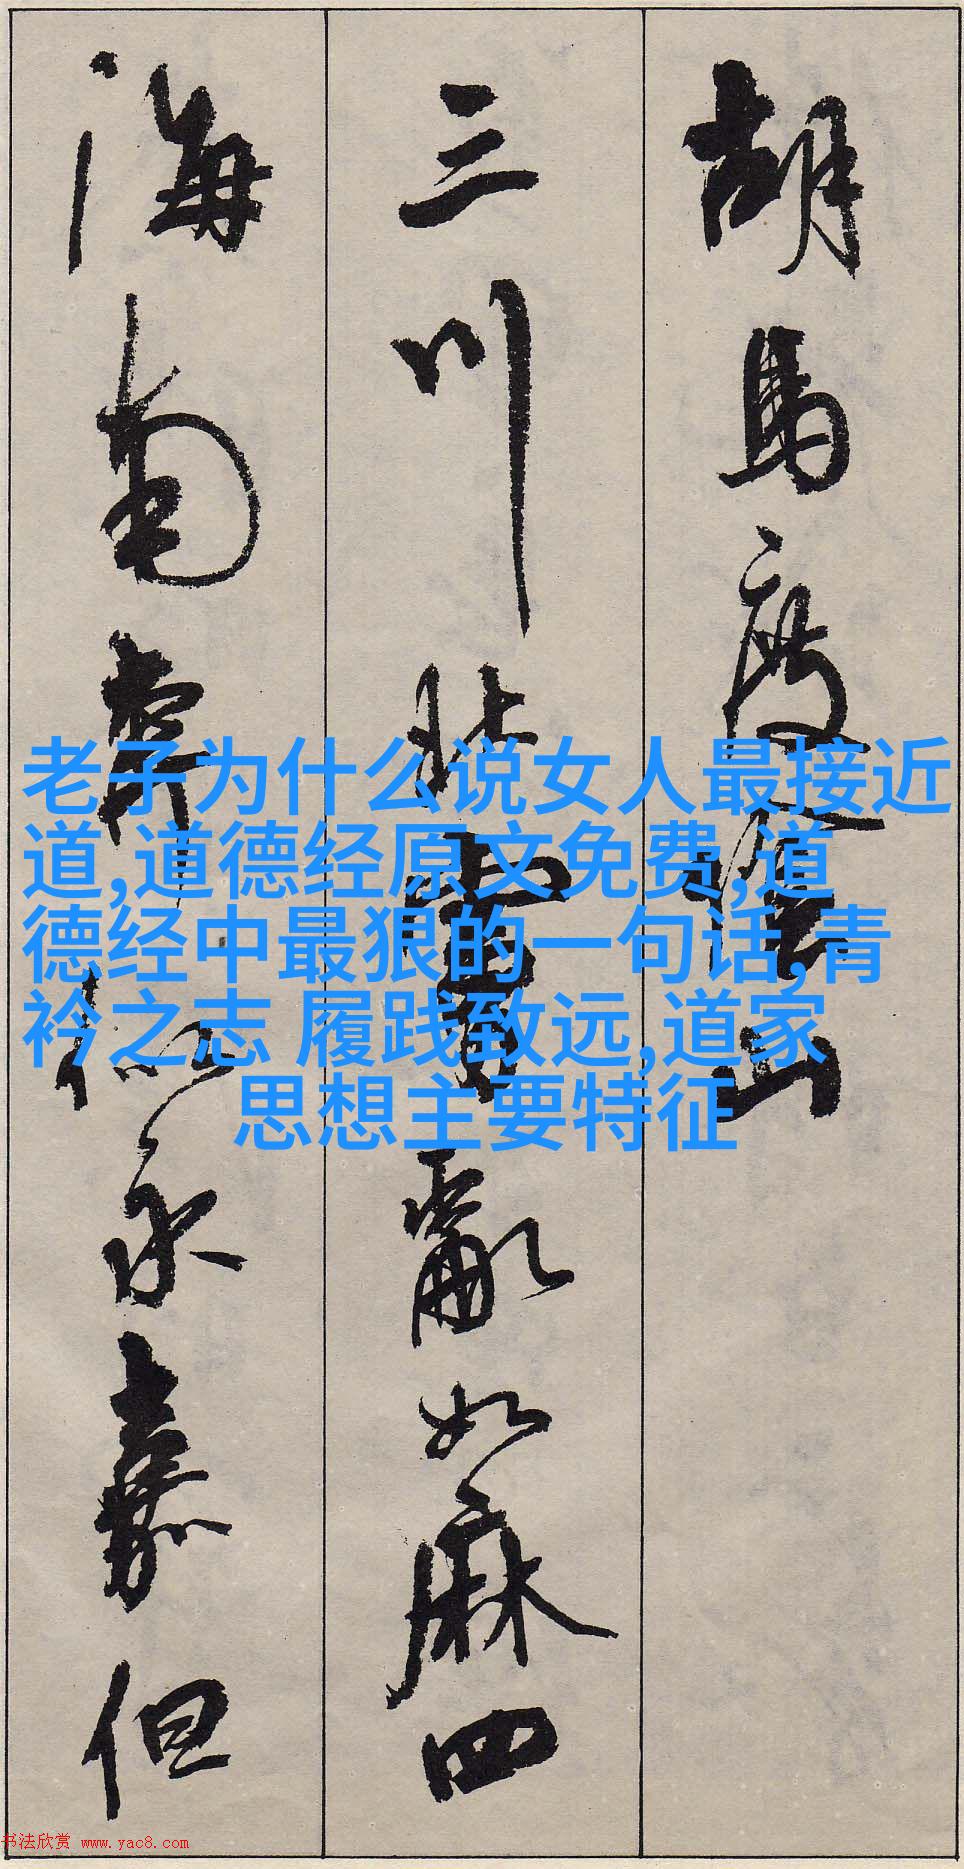 胡馬度陰山
三川北虜亂如麻四
海南奔似永嘉但
老子为什么说女人最接近
道,道德经原文免费,道
德经中最狠的一句话,青
衿之志 履践致远,道家
思想主要特征
书法欣赏 www.yac8.com